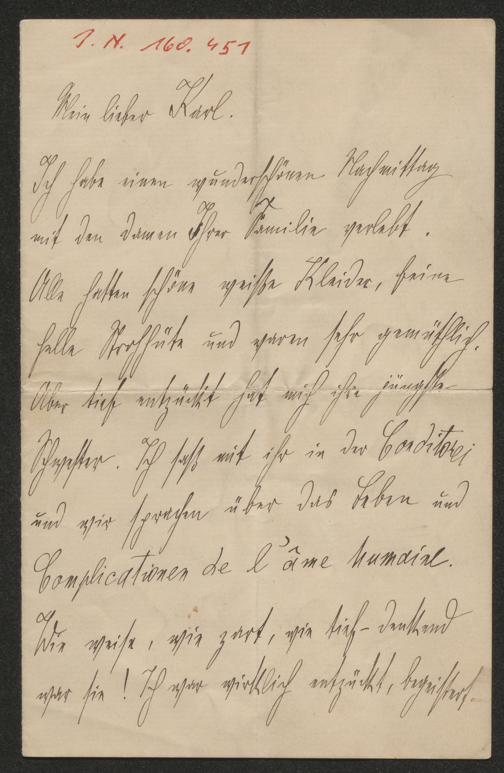 I. N. 160.451
Mein lieber Karl.
Ich habe einen wunderschönen Nachmittag
mit den Damen Ihrer Familie verlebt.
Alle hatten schöne weiße Kleider, feine
helle Strohhüte und waren sehr gemüthlich.
Aber tief entzückt hat mich ihre jüngste
Schwester. Ich saß mit ihr in der Conditorei
und wir sprachen über das Leben und
Complicationen de l'âme humaine.
Wie weise, wie zart, wie tief-denkend
war sie! Ich war wirklich entzückt, begeistert.